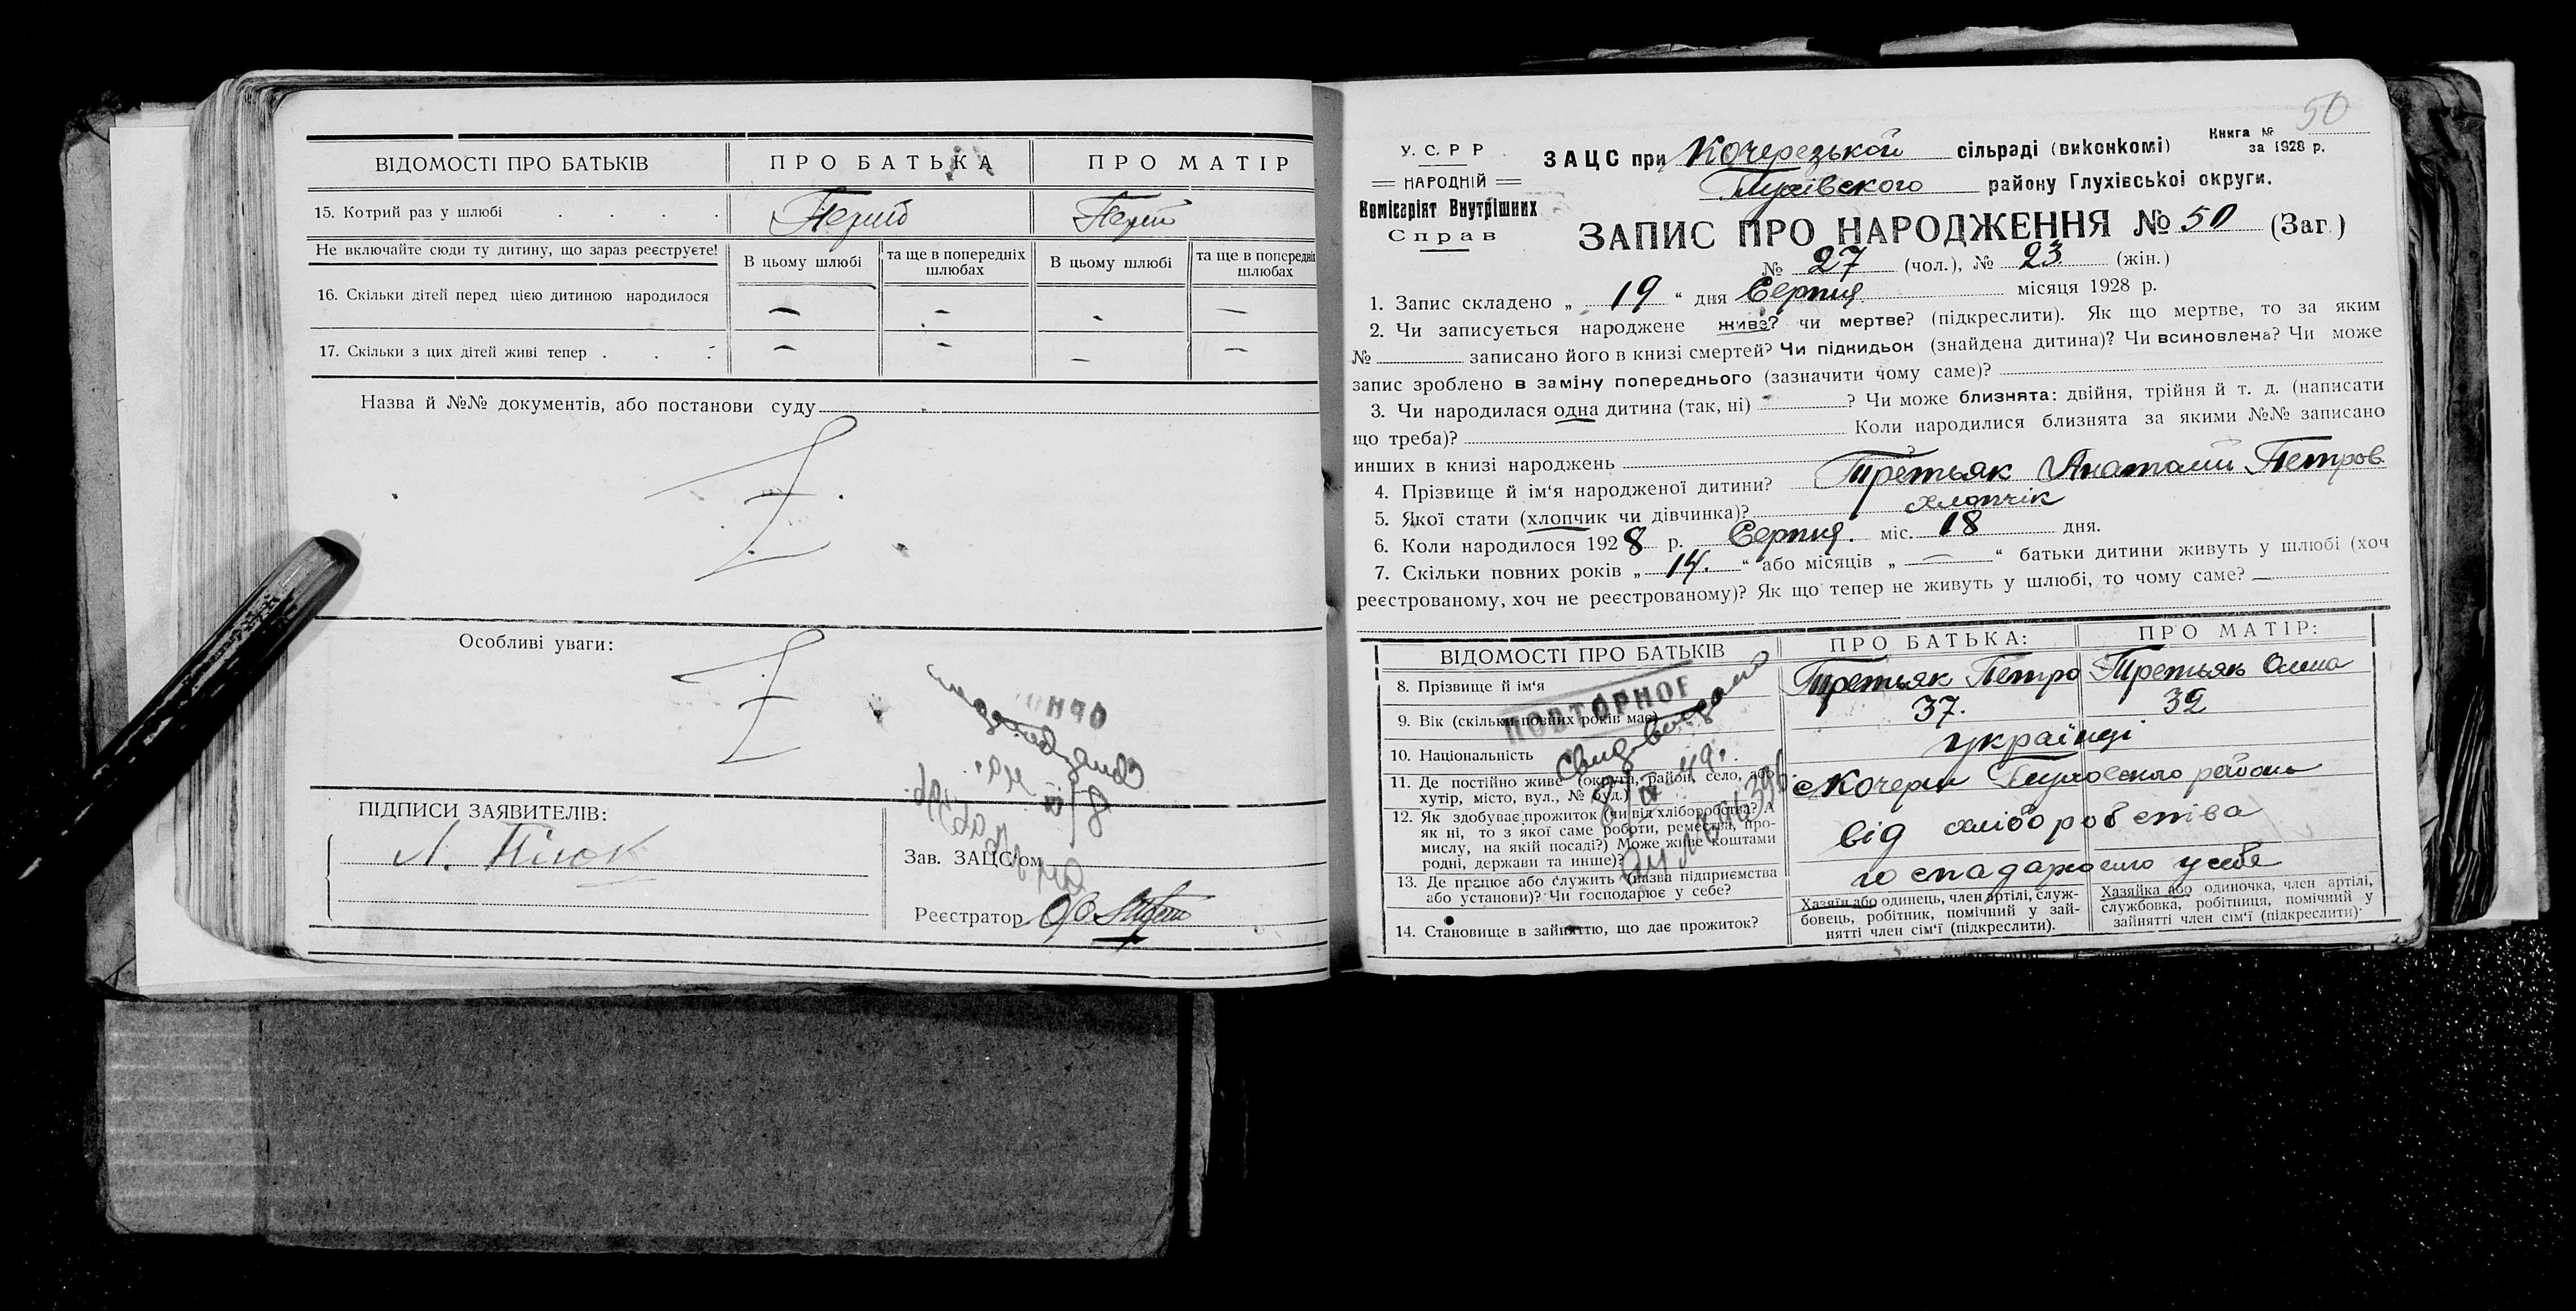 ВІДОМОСТІ ПРО БАТЬКІВ ПРО БАТЬКА ПРО МАТІР
15. Котрий раз у шлюбі . . . .
Не включайте сюди ту дитину, що зараз реєструєте! В цьому шлюбі та ще в попередніх шлюбах В цьому шлюбі та ще в попередніх шлюбах
16. Скільки дітей перед цією дитиною народилося — - - —
17. Скільки з цих дітей живі тепер . . . — - — —
Назва й №№ документів, або постанови суду
Z
Особливі уваги:
Z
ПІДПИСИ ЗАЯВИТЕЛІВ:
Зав. ЗАЦС'ом
Реєстратор
50
У. С. Р Р
НАРОДНІЙ
Комісаріят Внутрішних
Справ
Книга №
за 1928 р.
ЗАЦС при Кочерезькой сільраді (виконкомі)
району Глухівської округи.
ЗАПИС ПРО НАРОДЖЕННЯ № 50 (Заг.)
№ 27 (чол.), № 23 (жін.)
1. Запис складено „ 19 “ дня Серпня місяця 1928 р.
2. Чи записується народжене живе? чи мертве? (підкреслити). Як що мертве, то за яким
№ записано його в книзі смертей? Чи підкидьок (знайдена дитина)? Чи всиновлена? Чи може
запис зроблено в заміну попереднього (зазначити чому саме)?
3. Чи народилася одна дитина (так, ні) ? Чи може близнята: двійня, трійня й т. д. (написати
що треба)? Коли народилися близнята за якими №№ записано
инших в книзі народжень
4. Прізвище й ім'я народженої дитини? Третьяк Анатолий Петров
5. Якої стати (хлопчик чи дівчинка)? хлопчік
6. Коли народилося 1928 р. Серпня. міс. 18 дня.
7. Скільки повних років „ 14. “ або місяців „ — “ батьки дитини живуть у шлюбі (хоч
реєстрованому, хоч не реєстрованому)? Як що тепер не живуть у шлюбі, то чому саме? —
ВІДОМОСТІ ПРО БАТЬКІВ ПРО БАТЬКА: ПРО МАТІР:
8. Прізвище й ім'я Третьяк Петро Третьяк
ПОВТОРНОЕ
9. Вік (скільки повних років має) 37. 32
10. Національність українці
11. Де постійно живе (округа, район, село, або
хутір, місто, вул., № буд.)
12. Як здобуває прожиток (чи від хліборобства? А
як ні, то з якої саме роботи, ремества, про-
мислу, на якій посаді?) Може живе коштами
родні, держави та инше)?
від хліборобства
13. Де працює або служить (назва підприємства
або установи)? Чи господарює у себе?
у себе
14. Становище в зайняттю, що дає прожиток?
Хазяїн або одинець, член артілі, служ-
бовець, робітник, помічний у зай-
нятті член сім'ї (підкреслити).
Хазяйка або одиночка, член артілі,
службовка, робітниця, помічний у
зайнятті член сім'ї (підкреслити).